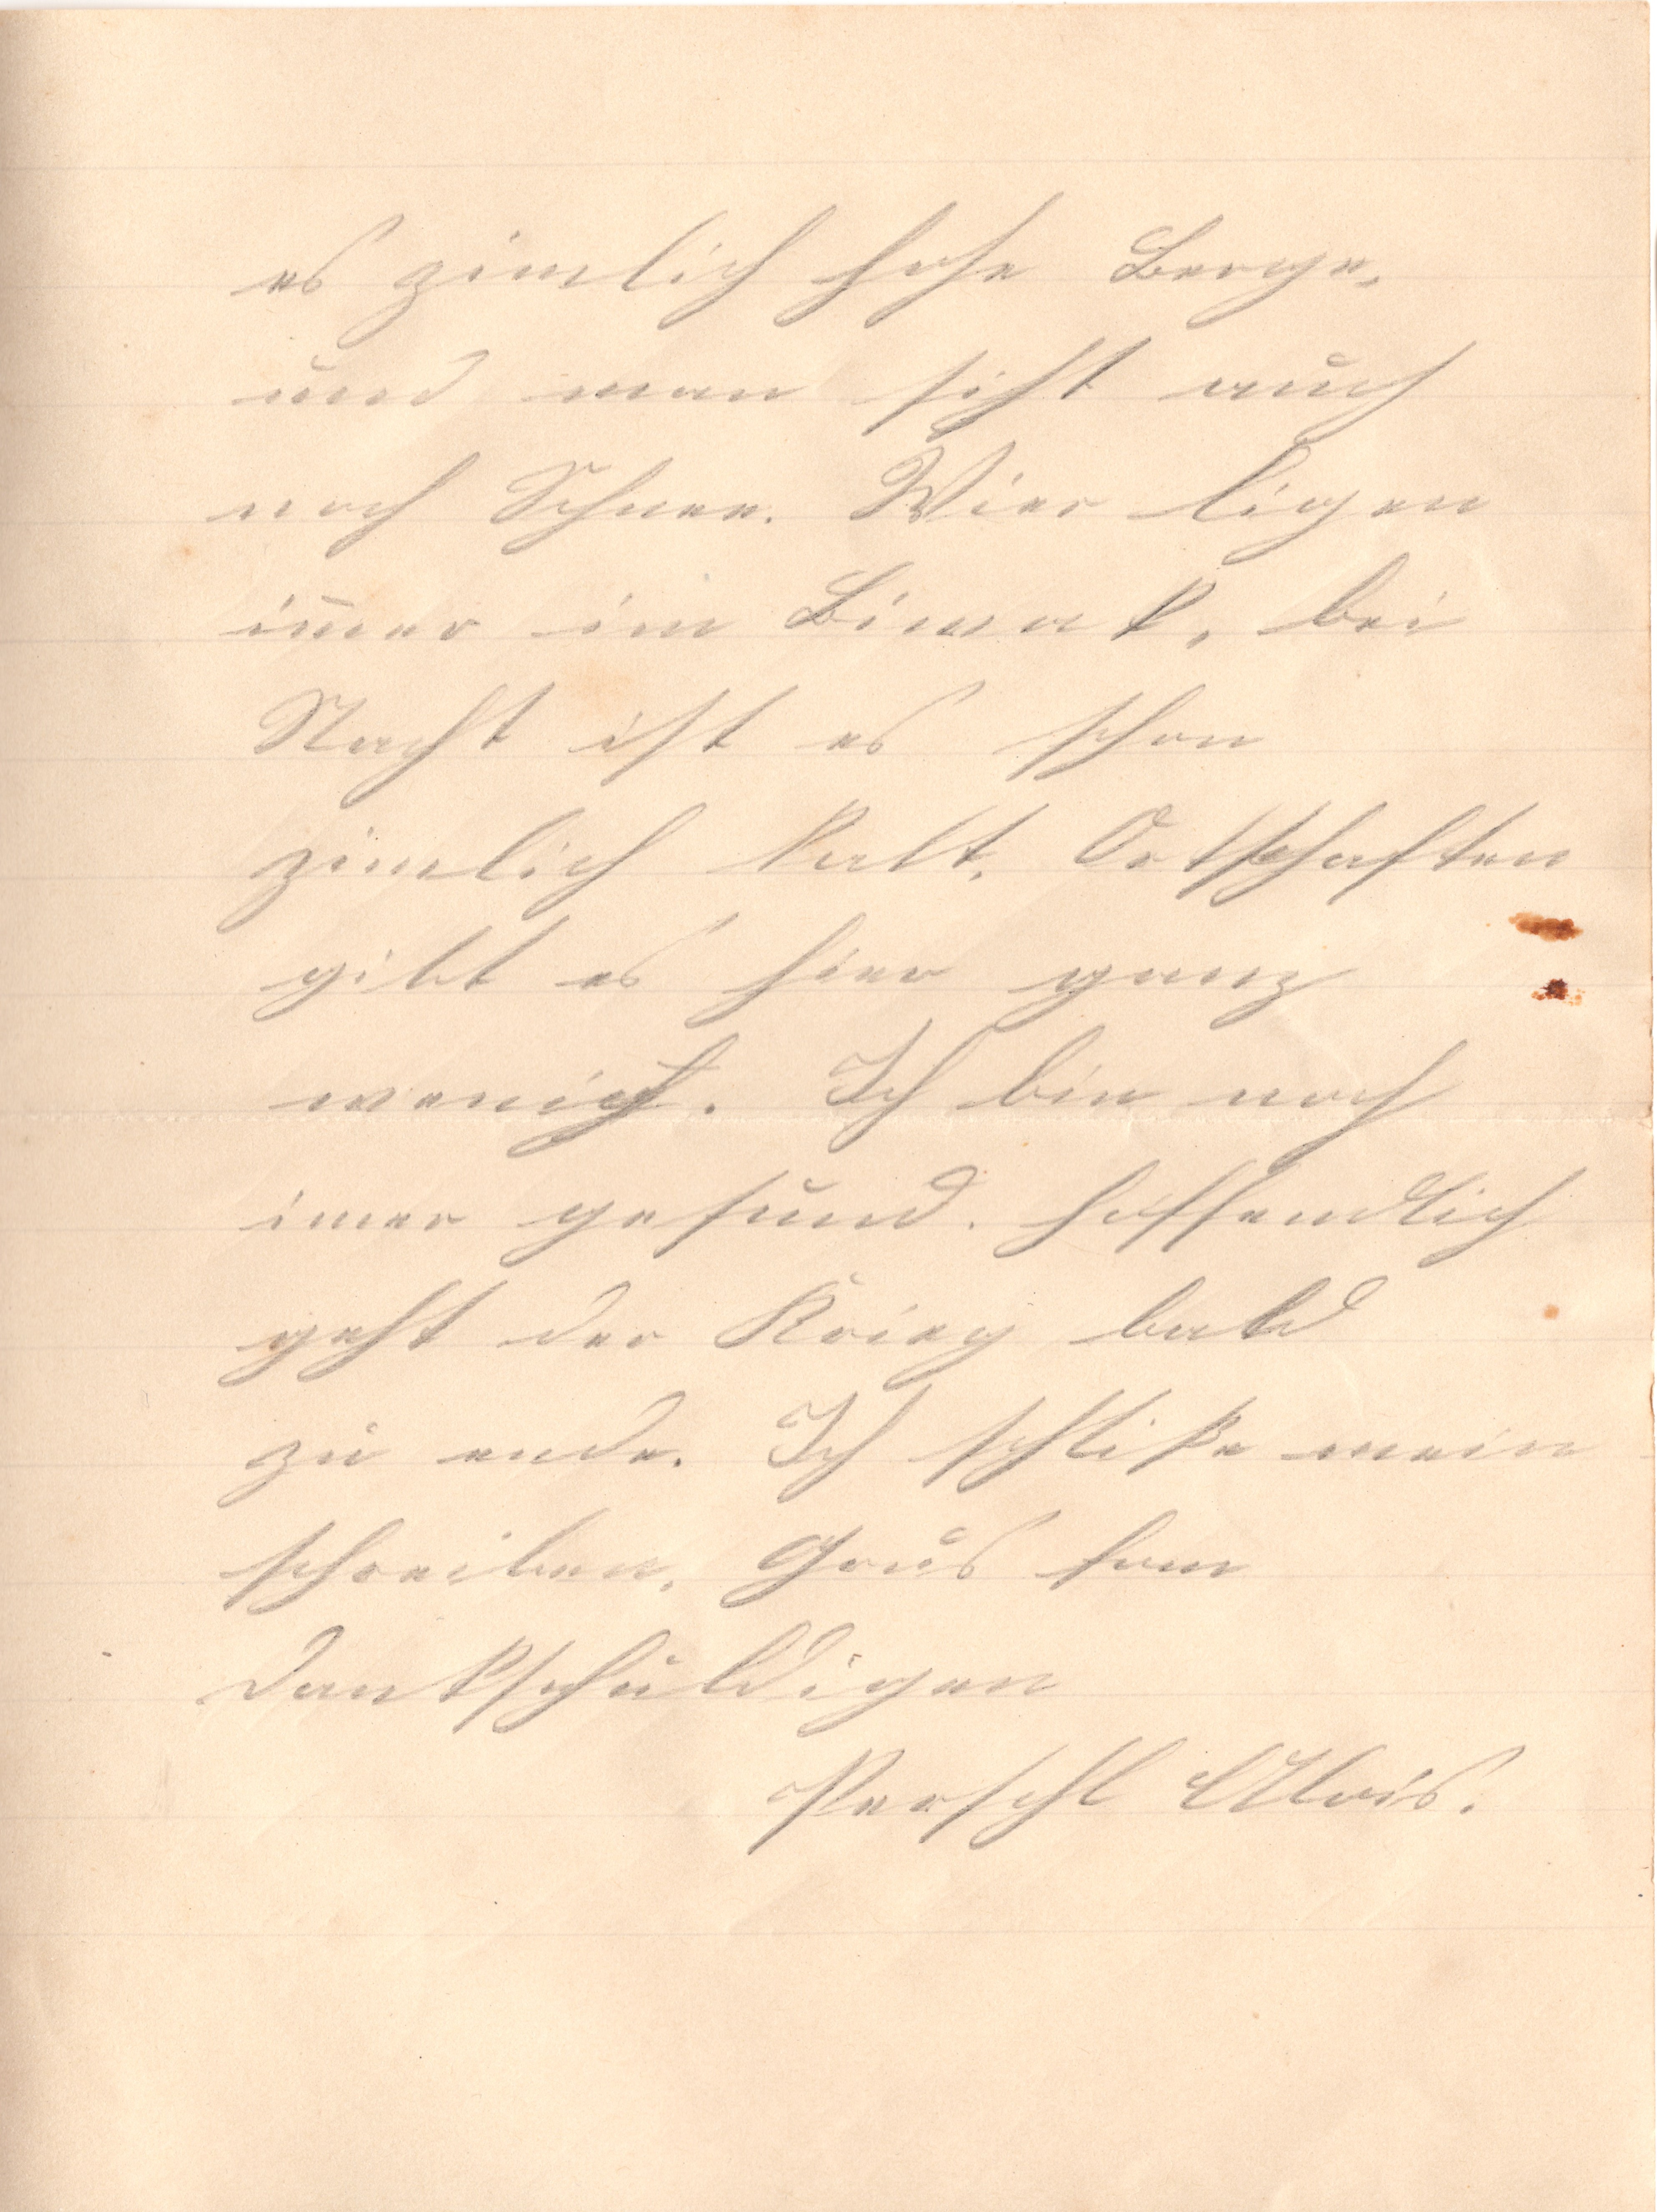 es zimlich hohe Berge,
und man siht auch
noch Schnee. Wier ligen
im̄er im Biwak, bei
Nacht ist es schon
zimlich kalt, Ortschaften
gibt es hier ganz
wenig. Ich bin noch
imer gesund. hoffendlich
geht der Krieg bald
zu ende. Ich schliße mein
schreiben, Grus fom
Dankschuldigen
Perschl Alois.